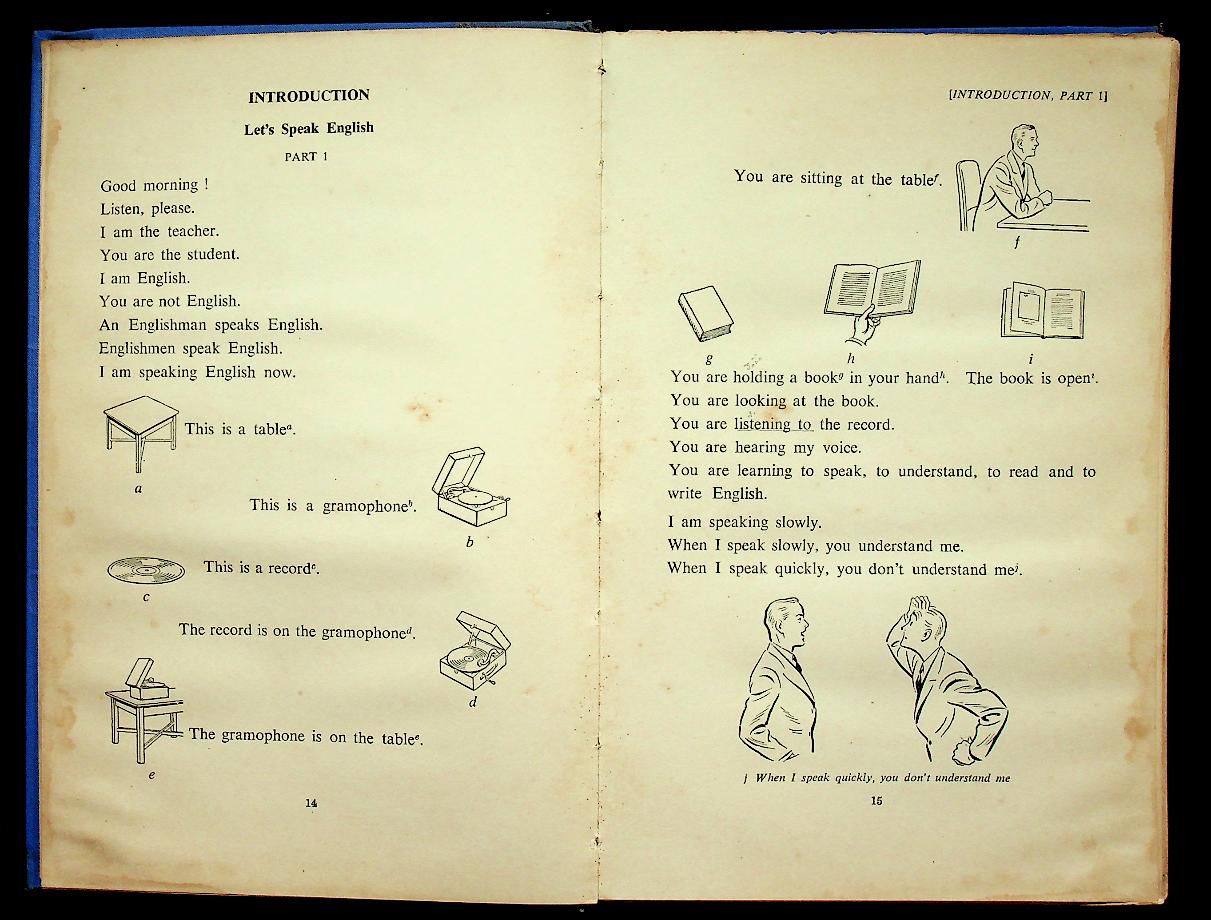 INTRODUCTION
Let's Speak English
PART 1
Good morning !
Listen, please.
I am the teacher.
You are the student.
I am English.
You are not English.
An Englishman speaks English.
Englishmen speak English.
I am speaking English now.
This is a tableᵃ.
a
This is a gramophoneᵇ.
b
This is a recordᶜ.
c
The record is on the gramophoneᵈ.
d
The gramophone is on the tableᵉ.
e
14
[INTRODUCTION, PART 1]
You are sitting at the tableᶠ.
f
g h i
You are holding a bookᵍ in your handʰ. The book is openⁱ.
You are looking at the book.
You are listening to the record.
You are hearing my voice.
You are learning to speak, to understand, to read and to
write English.
I am speaking slowly.
When I speak slowly, you understand me.
When I speak quickly, you don't understand meʲ.
j When I speak quickly, you don't understand me
15